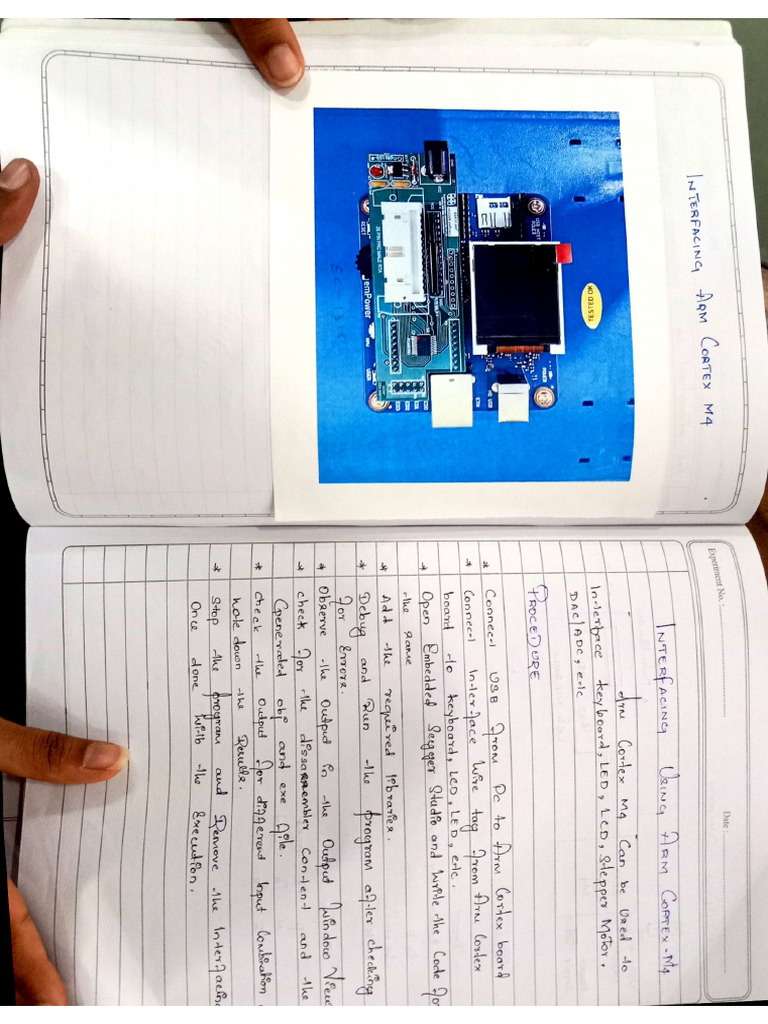 INTERFACING ARM CORTEX M4
TESTED OK
RESET
JemPower
POWER
Experiment No. :
Date :
INTERFACING USING ARM CORTEX-M4
Arm Cortex M4 Can be Used to
Interface keyboard, LED, LCD, Stepper Motor,
DAC/ADC, etc
PROCEDURE
* Connect USB from Pc to Arm Cortex board
* Connect Interface Wire tag from Arm Cortex
board to keyboard, LCD, LED, etc.
* Open Embedded Segger Studio and Write the Code for
the same
* Add the required libraries.
* Debug and Run the program after checking
for Errors.
* Observe the Output in the Output Window View
* check for the dissassembler content and the
Generated obj and exe file.
* check the output for different Input Combination
note down the Results.
* Stop the program and Remove the Interfacin
Once done With the Execution.